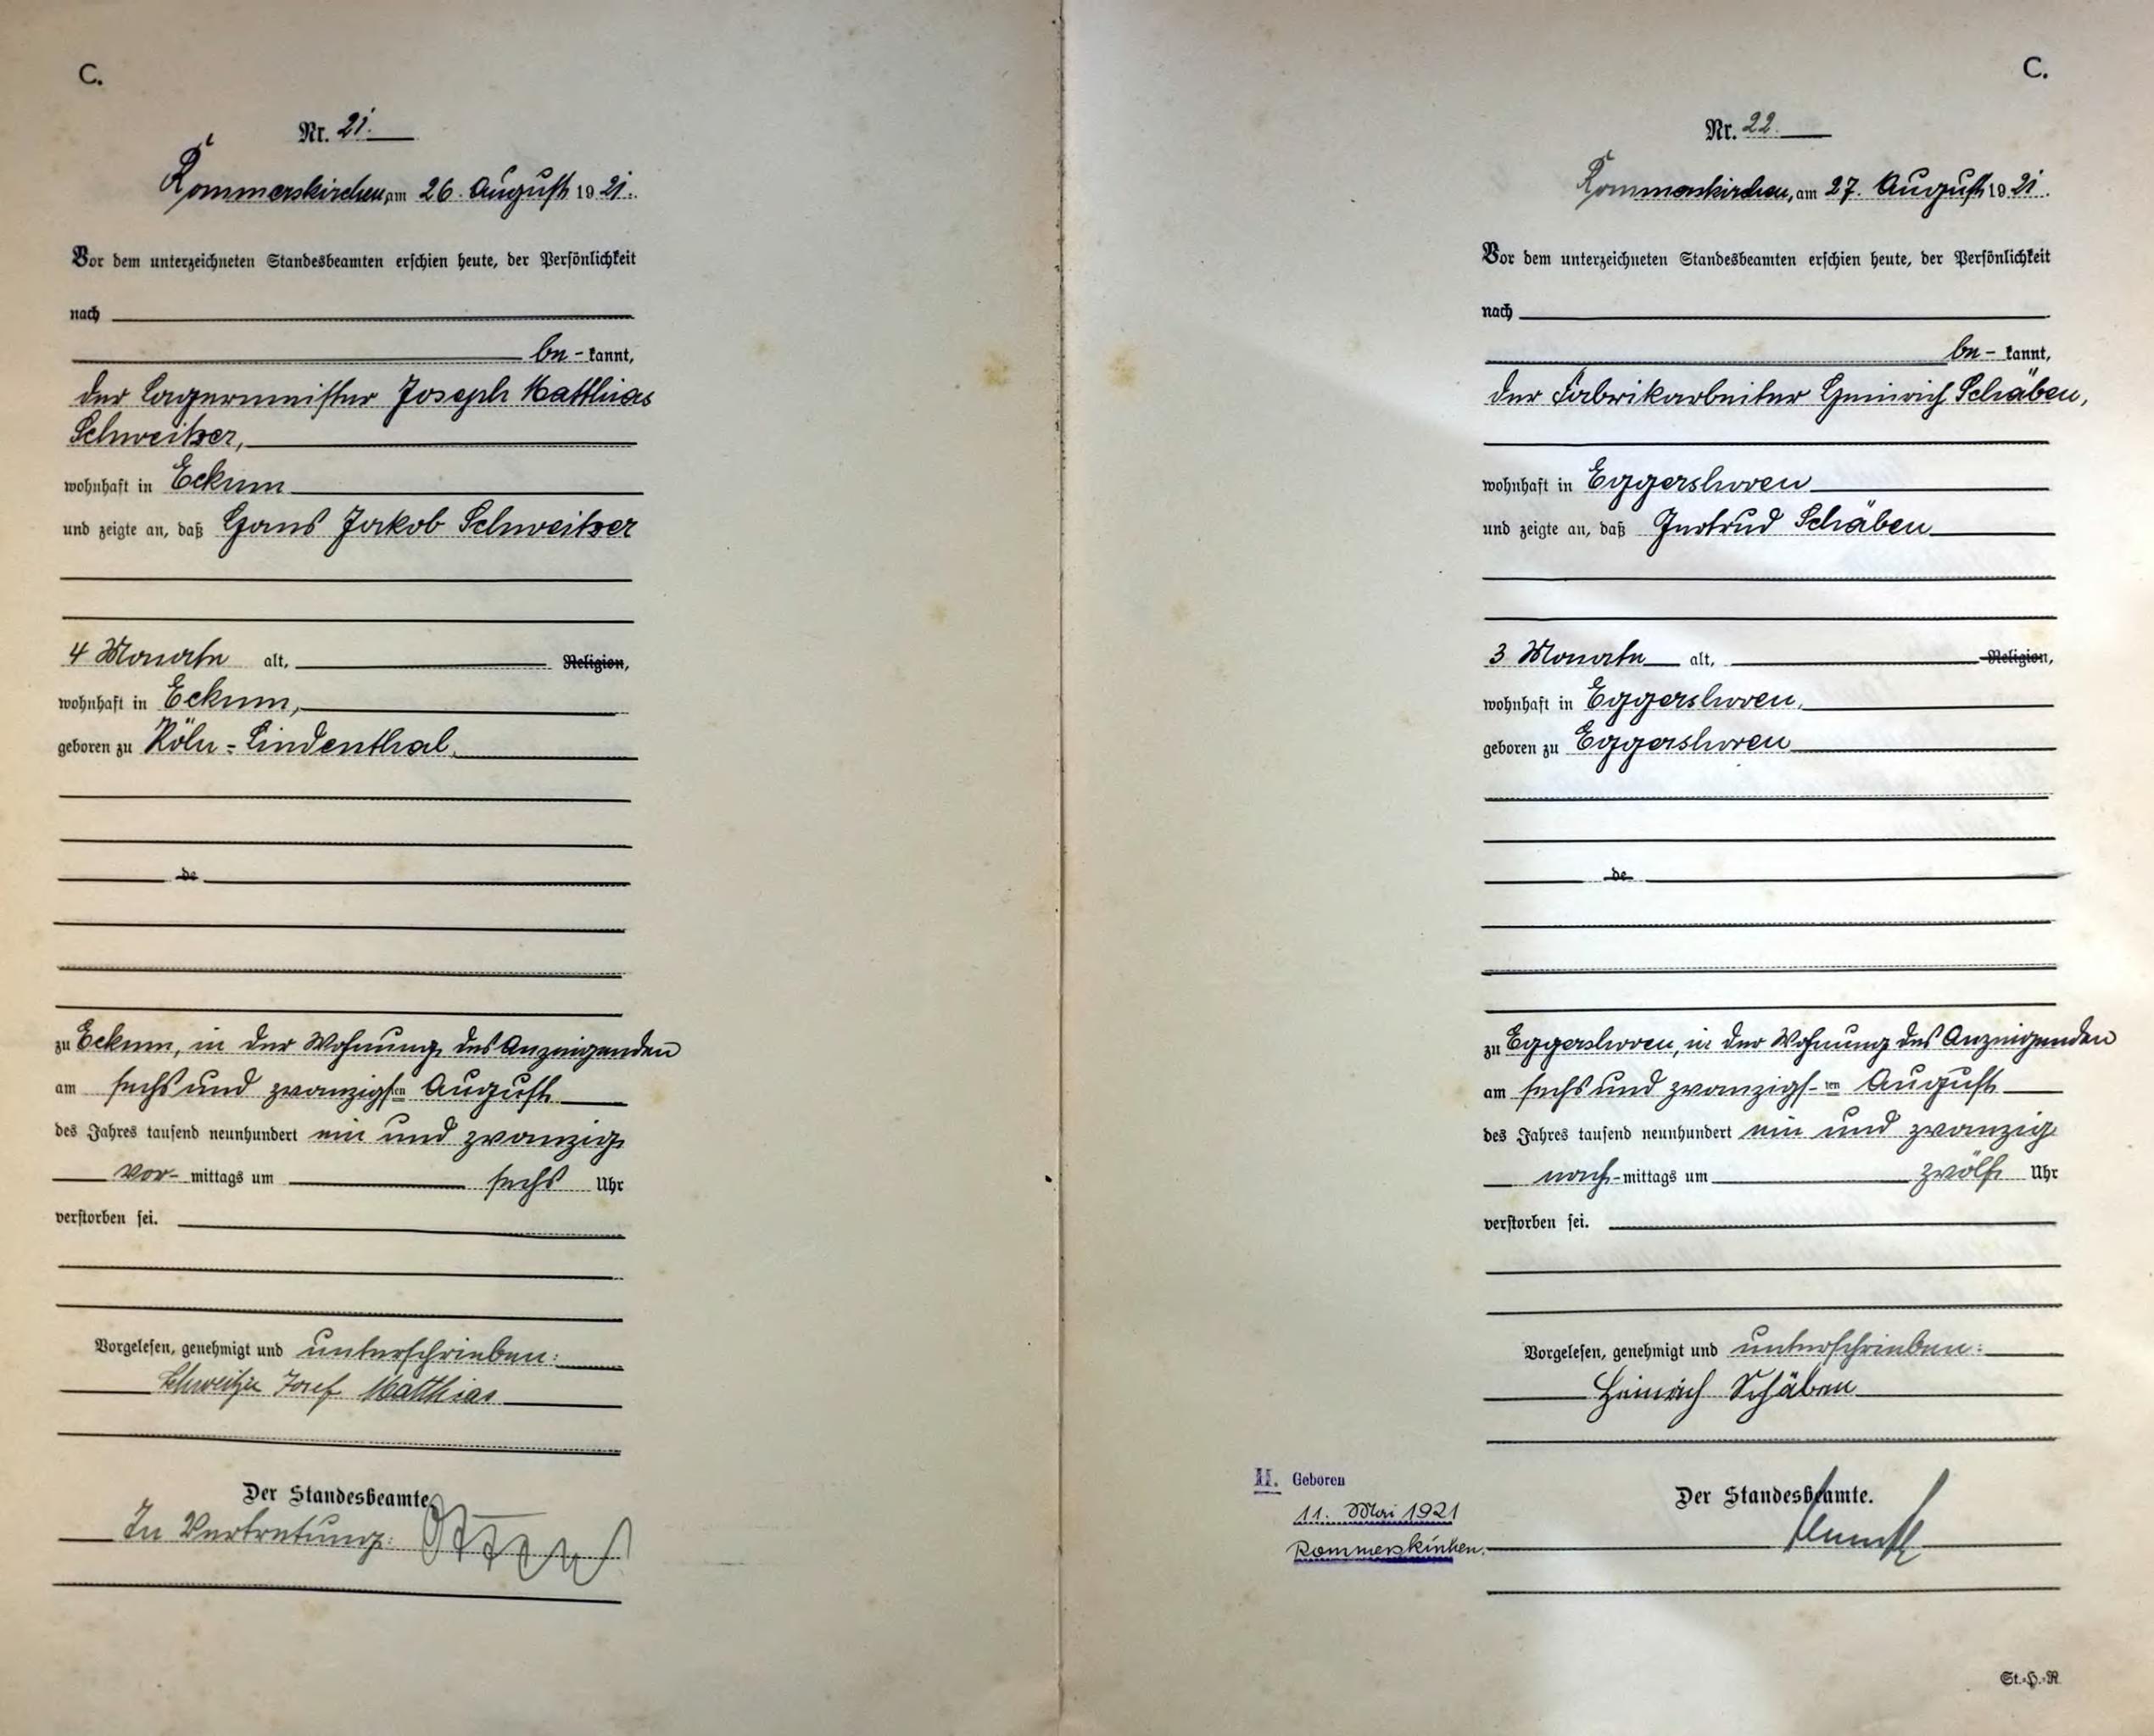 C.
Nr. 21.
Rommerskirchen, am 26. August 1921.
Vor dem unterzeichneten Standesbeamten erschien heute, der Persönlichkeit
nach
be- kannt,
der Lagermeister Joseph Matthias
Schweitzer,
wohnhaft in Eckum
und zeigte an, daß Hans Jakob Schweitzer
4 Monate alt, Religion,
wohnhaft in Eckum,
geboren zu Köln-Lindenthal,
de
zu Eckum, in der Wohnung des Anzeigenden
am sechs und zwanzigsten August
des Jahres tausend neunhundert ein und zwanzig
vor- mittags um sechs Uhr
verstorben sei.
Vorgelesen, genehmigt und unterschrieben:
Schweitzer Josef Matthias
Der Standesbeamte.
In Vertretung:
C.
Nr. 22.
Rommerskirchen, am 27. August 1921.
Vor dem unterzeichneten Standesbeamten erschien heute, der Persönlichkeit
nach
be- kannt,
der Fabrikarbeiter Heinrich Schäben,
wohnhaft in Eggershoven
und zeigte an, daß Gertrud Schäben
3 Monate alt, Religion,
wohnhaft in Eggershoven,
geboren zu Eggershoven
de
zu Eggershoven, in der Wohnung des Anzeigenden
am sechs und zwanzigs-ten August
des Jahres tausend neunhundert ein und zwanzig
nach-mittags um zwölf Uhr
verstorben sei.
Vorgelesen, genehmigt und unterschrieben:
Heinrich Schäben
Der Standesbeamte.
II. Geboren
11. Mai 1921
Rommerskirchen.
St.-H.-R.